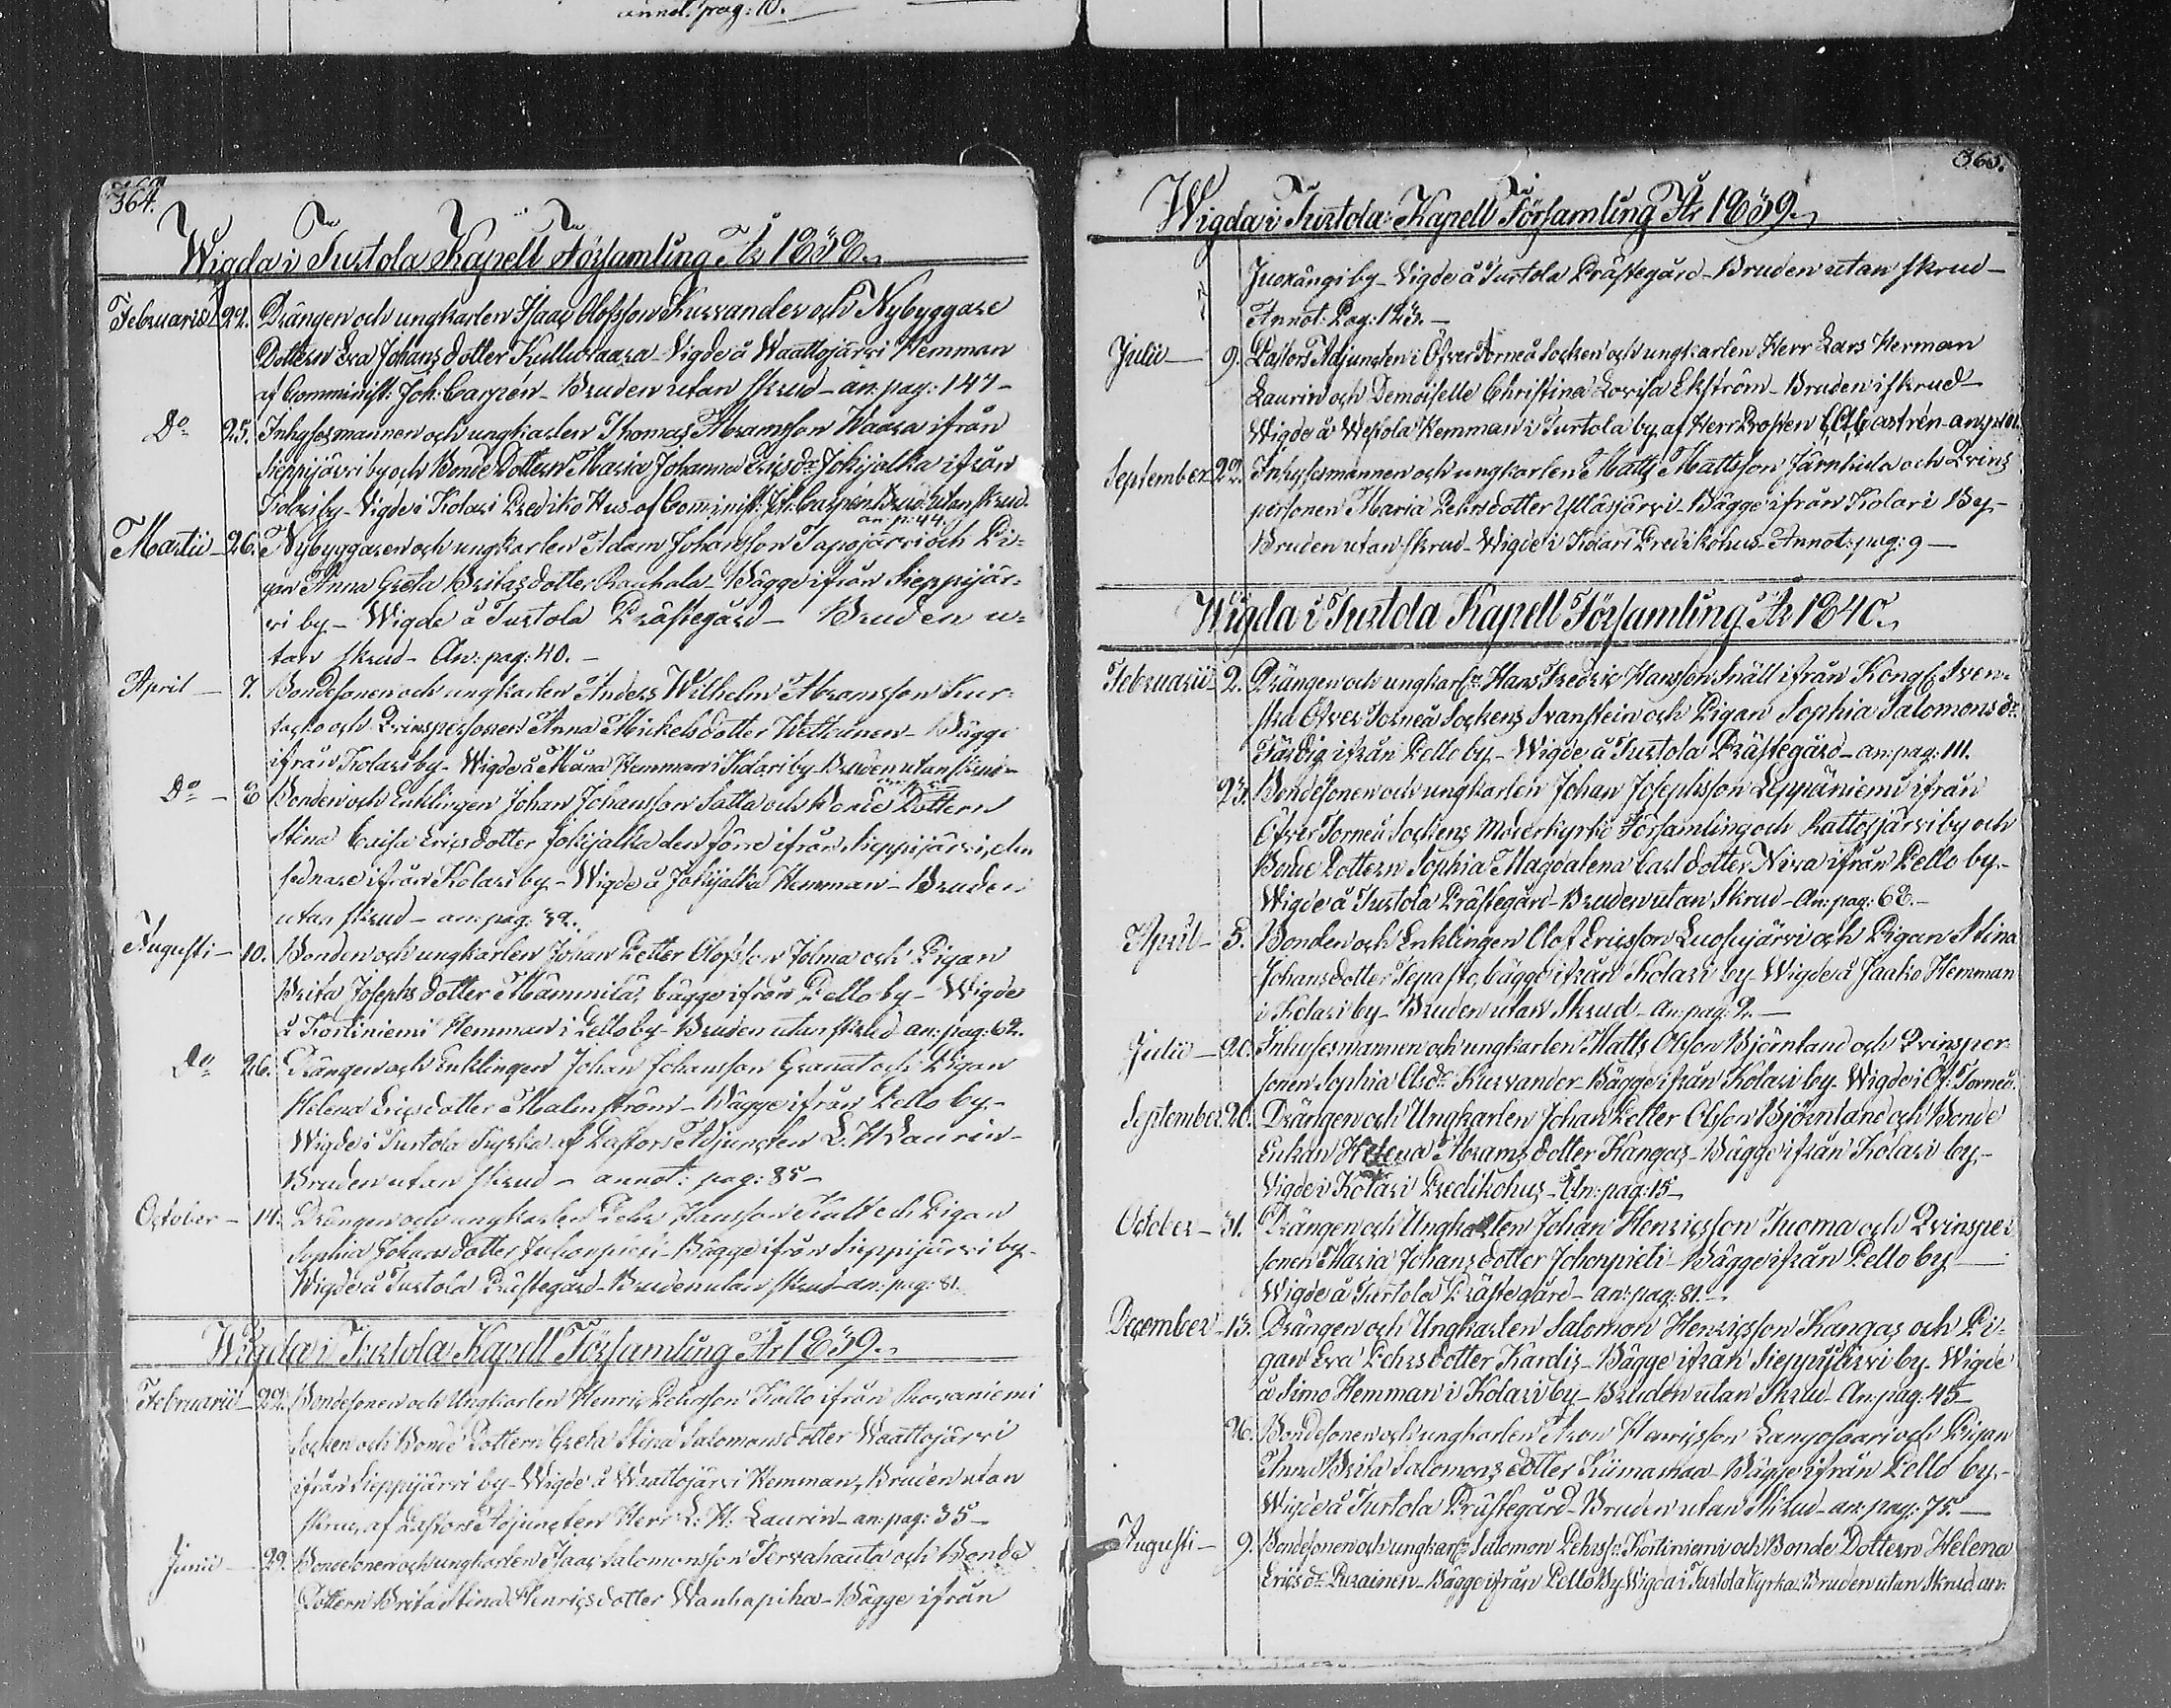 annot. pag: 10.
364.
Wigda i Turtola Kapell Församling År 1838.
Februarii 22. Drängen och ungkarlen Isaac Olofsson Kurvander och Nybyggare
Dottern Eva Johans dotter Kulluvaara - Vigde å Waattojärvi Hemman
af Comminist: Joh: Carpén - Bruden utan skrud - an: pag: 147 -
Do 25. Inhysesmannen och ungkarlen Thomas Abramsson Waara ifrån
Sieppijärvi by och Bonde Dottern Maria Johanna Ericsdr Jokijalka ifrån
Kolari by - Vigde i Kolari Prediko Hus af Comminist: Joh: Carpén Brud: utan skrud.
an: p: 44.
Martii - 26. Nybyggaren och ungkarlen Adam Johansson Tapojärvi och Pi-
gan Anna Greta Britas dotter Rauhala - Bägge ifrån Sieppijär-
vi by - Wigde å Turtola Prästegård - Bruden u-
tan skrud - An: pag: 40. -
April - 7. Bondesonen och ungkarlen Anders Wilhelm Abramsson Kur-
tacko och Qvinspersonen Anna Mickelsdotter Wettainen - Bägge
ifrån Kolari by - Wigde å Måna Hemman i Kolari by Bruden utan skrud -
Do - 8 Bonden och Enklingen Johan Johansson Satta och Bonde Dottern
Stina Caisa Erics dotter Jokijalka den förre ifrån Sieppijärvi, den
sednare ifrån Kolari by - Wigde å Jokijalka Hemman - Bruden
utan skrud - an: pag: 39.
Augusti - 10. Bonden och ungkarlen Johan Petter Olofsson Jolma och Pigan
Brita Josephs dotter Mämmilä, bägge ifrån Pello by - Wigde
å Kortiniemi Hemman i Pello by - Bruden utan skrud an: pag: 62.
Do 26. Drängen och Enklingen Johan Johansson Granat och Pigan
Helena Erics dotter Malmström - Bägge ifrån Pello by -
Wigde i Turtola Kyrka af Pastors Adjuncten L. H Laurin -
Bruden utan skrud - annot: pag: 85 -
October - 14. Drängen och ungkarlen Pehr Hansson Kult och Pigan
Sophia Johans dotter Juhonpieti - Bägge ifrån Sieppijärvi by -
Wigde å Turtola Prästegård - Bruden utan skrud - an: pag: 81.
Wigda i Turtola Kapell Församling År 1839.
Februarii - 22. Bondesonen och Ungkarlen Henric Pehrsson Kallo ifrån Rovaniemi
Socken och Bonde Dottern Greta Stina Salomons dotter Waattojärvi
ifrån Sieppijärvi by - Wigde å Waattojärvi Hemman, Bruden utan
skrud, af Pastors Adjuncten Herr L: H: Laurin - an: pag: 35 -
Junii - 29. Bondesonen och ungkarlen Isaac Salomonsson Tervahauta och Bonde
Dottern Brita Stina Henrics dotter Wanhapiha - Bägge ifrån
365.
Wigda i Turtola Kapell Församling År 1839.
Juoxängi by - Vigde å Turtola Prästegård - Bruden utan skrud -
Annot: Pag: 123. -
Julii - 9. Pastors Adjuncten i Öfver Torneå Socken och ungkarlen Herr Lars Herman
Laurin och Demoiselle Christina Lovisa Ekström - Bruden i skrud -
Wigde å Westola Hemman i Turtola by af Herr Prosten C. Castrén - an: p: 101.
September 22. Inhysesmannen och ungkarlen Matts Mattsson Järnhida och Qvins
personen Maria Pehrsdotter Ylläsjärvi - Bägge ifrån Kolari By -
Bruden utan skrud - Wigde i Kolari Predikohus - Annot: pag: 9 -
Wigda i Turtola Kapell Församling År 1840.
Februarii - 2. Drängen och ungkarln Hans Fredric Hansson Snäll ifrån Kongl. Sven-
ska Öfver Torneå Sockens Svanstein och Pigan Sophia Salomonsdr
Färdig ifrån Pello by - Wigde å Turtola Prästegård - an: pag: 111.
23. Bondesonen och ungkarlen Johan Josephsson Leppäniemi ifrån
Öfver Torneå Sockens Moderkyrko Församling och Rattosjärvi by och
Bonde Dottern Sophia Magdalena Carls dotter Niva ifrån Pello by -
Wigde å Turtola Prästegård - Bruden utan Skrud - An: pag: 68. -
April - 5. Bonden och Enklingen Olof Ericsson Luosujärvi och Pigan Stina
Johansdotter Tepasto, bägge ifrån Kolari by - Wigde å Jaako Hemman
i Kolari by - Bruden utan Skrud - An: pag: 2. -
Julii - 20. Inhysesmannen och ungkarlen Matts Olsson Björnland och Qvinsper-
sonen Sophia Olsdr Kurvander - Bägge ifrån Kolari by - Wigde i Öf: Torneå.
September 20. Drängen och Ungkarlen Johan Petter Olsson Björnland och Bonde
Enkan Helena Abrams dotter Kangas - Bägge ifrån Kolari by -
Vigde i Kolari Predikohus - An: pag: 15 -
October - 31. Drängen och Ungkarlen Johan Henricsson Tuoma och Qvinsper
sonen Maria Johans dotter Johonpieti - Bägge ifrån Pello by -
Wigde å Turtola Prästegård - an: pag: 81. -
December - 13. Drängen och Ungkarlen Salomon Henricsson Kangas och Pi-
gan Eva Pehrsdotter Kardis - Bägge ifrån Sieppijärvi by - Wigde
å Simo Hemman i Kolari by - Bruden utan Skrud - An: pag: 45 -
26. Bondesonen och ungkarlen Aron Henricsson Langosaari och Pigan
Anna Brita Salomons dotter Kiimamaa - Bägge ifrån Pello by -
Wigde å Turtola Prästegård - Bruden utan Skrud - an: pag: 75. -
Augusti - 9. Bondesonen och ungkarln Salomon Pehrsson Kortiniemi och Bonde Dottern Helena
Ericsdr Purainen - Bägge ifrån Pello By Wigda i Turtola Kyrka. Bruden utan Skrud. an: